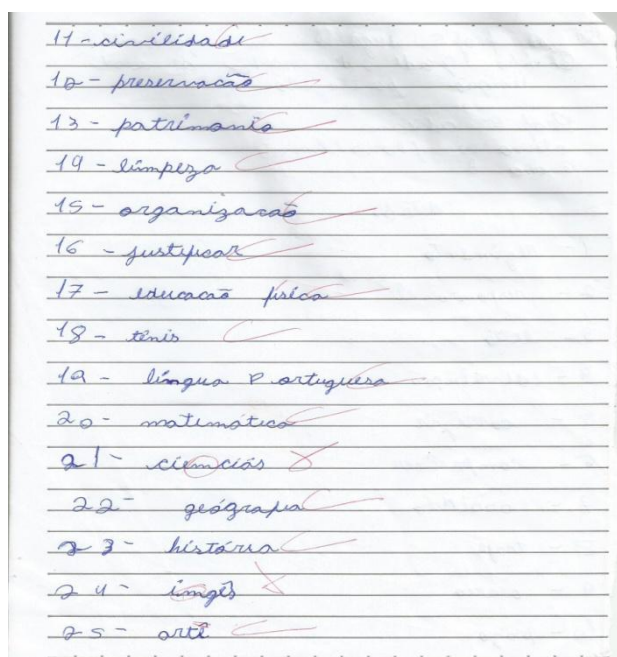 11-civilidade
12- preservação
13- patrimonio
14 - limpeza
15- organizacaõ
16 - justificar
17 - educacaõ física
18 - tênis
19 - língua Portuguesa
20- matemática
21- ciemciás
22- geógrafia
23- história
24- imgês
25- arte